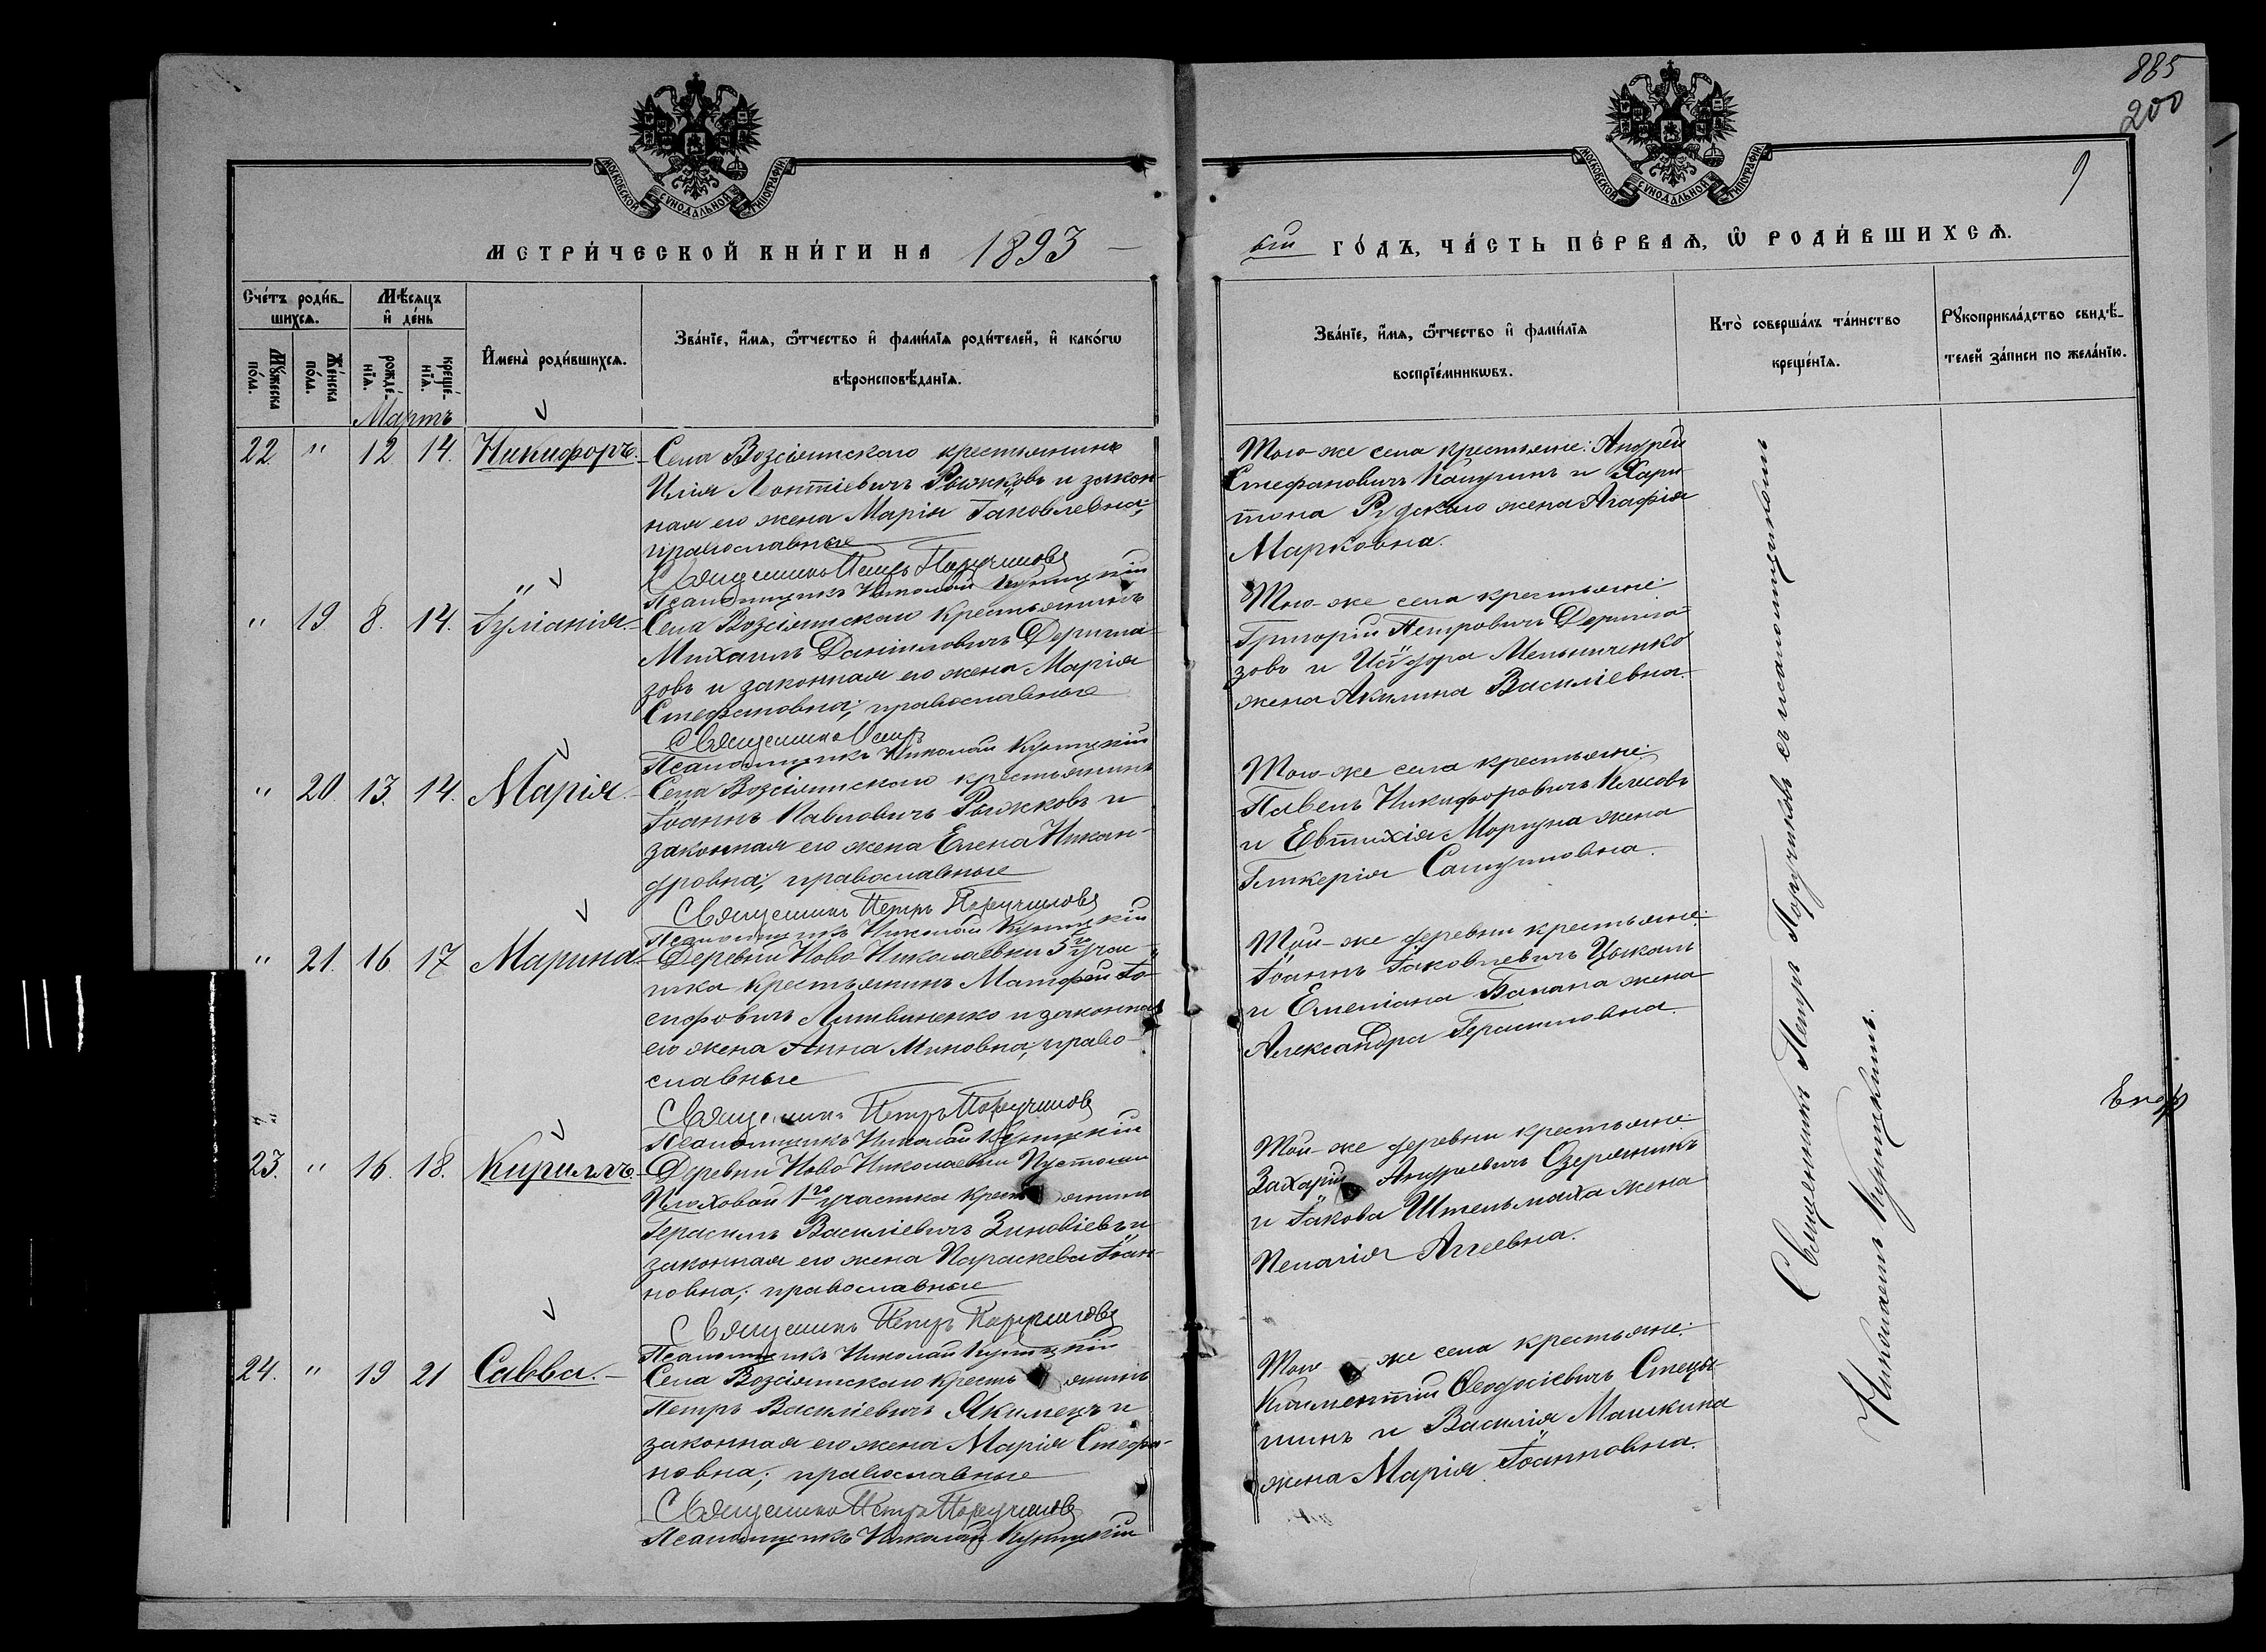 885
200
9
МОСКОВСКОЙ СѴНОДАЛЬНОЙ ТИПОГРАФІИ
МЕТРИ́ЧЕСКОЙ КНИ́ГИ НА 1893
МОСКОВСКОЙ СѴНОДАЛЬНОЙ ТИПОГРАФІИ
ій ГО́ДЪ, ЧА́СТЬ ПЕ́РВАѦ, Ѿ РОДИ́ВШИХСѦ.
Сче́тъ роди́в-
шихсѧ.
Мѣ́сѧцъ
и҆ де́нь
Мꙋ́жеска
по́ла.
Же́нска
по́ла.
рожде́-
нїѧ.
креще́-
нїѧ.
И҆мена̀ роди́вшихсѧ.
Зва́нїе, и҆́мѧ, ѻ҆́тчество и҆ фами́лїѧ роди́телей, и҆ како́гѡ
вѣроисповѣ́данїѧ.
Зва́нїе, и҆́мѧ, ѻ҆́тчество и҆ фами́лїѧ
воспрїе́мникѡвъ.
Кто̀ соверша́лъ та́инство
креще́нїѧ.
Рꙋкоприкла́дство свидѣ́-
телей за́писи по жела́нїю.
Мартъ
22. " 12. 14. Никифоръ.
Села Возсіятскаго крестьянинъ
Илія Леонтіевичъ Рыжковъ и закон-
ная его жена Марія Іаковлевна;
православные
Священникъ Петръ Поручиковъ
Псаломщикъ Николай Куницкій
Того-же села крестьяне: Андрей
Стефановичъ и Хари-
тона Рудскаго жена Агафія
Марковна.
" 19. 8. 14. Іуліанія.
Села Возсіятскаго крестьянинъ
Михаилъ Даніиловичъ Дерима-
зовъ и законная его жена Марія
Стефановна; православные
Священникъ Петръ
Псаломщикъ Николай Куницкій
Того-же села крестьяне:
Григорій Петровичъ Дерима-
зовъ и Исидора Мельниченко
жена Акилина Василіевна.
" 20. 13. 14. Марія.
Села Возсіятскаго крестьянинъ
Іоаннъ Павловичъ Рыжковъ и
законная его жена Елена Никан-
дровна; православные
Священникъ Петръ Поручиковъ
Псаломщикъ Николай Куницкій
Того-же села крестьяне:
Павелъ Никифоровичъ
и Евтихія Моргуна жена
Гликерія Самуиловна.
" 21. 16. 17 Марина
Деревни Ново-Николаевки 3го учас-
тка крестьянинъ Матфей Іо-
сифовичъ Литвиненко и законная
его жена Анна Миновна; право-
славные
Священникъ Петръ Поручиковъ
Псаломщикъ Николай Куницкій
Той-же деревни крестьяне:
Іоаннъ Іаковлевичъ Цыкалъ
и Емеліана Балана жена
Александра Герасимовна.
23. " 16. 18. Кириллъ.
Деревни Ново-Николаевки Пустоши
Плоховой 1го участка крестьянинъ
Герасимъ Василіевичъ Зиновіевъ и
законная его жена Параскева Іоан-
новна; православные
Священникъ Петръ Поручиковъ
Псаломщикъ Николай Куницкій
Той-же деревни крестьяне:
Захарій Андреевичъ Озеряникъ
и Іакова Штельмаха жена
Пелагія Аггеевна.
24. " 19 21 Савва.
Села Возсіятскаго крестьянинъ
Петръ Василіевичъ Якимецъ и
законная его жена Марія Стефа-
новна; православные
Священникъ Петръ Поручиковъ
Псаломщикъ Николай Куницкій
Того же села крестьяне:
Климентій Ѳеодосіевичъ Стецы-
шинъ и Василія Машкина
жена Марія Іоанновна.
Священникъ Петръ Поручиковъ съ псаломщикомъ
Николаемъ Куницкимъ.